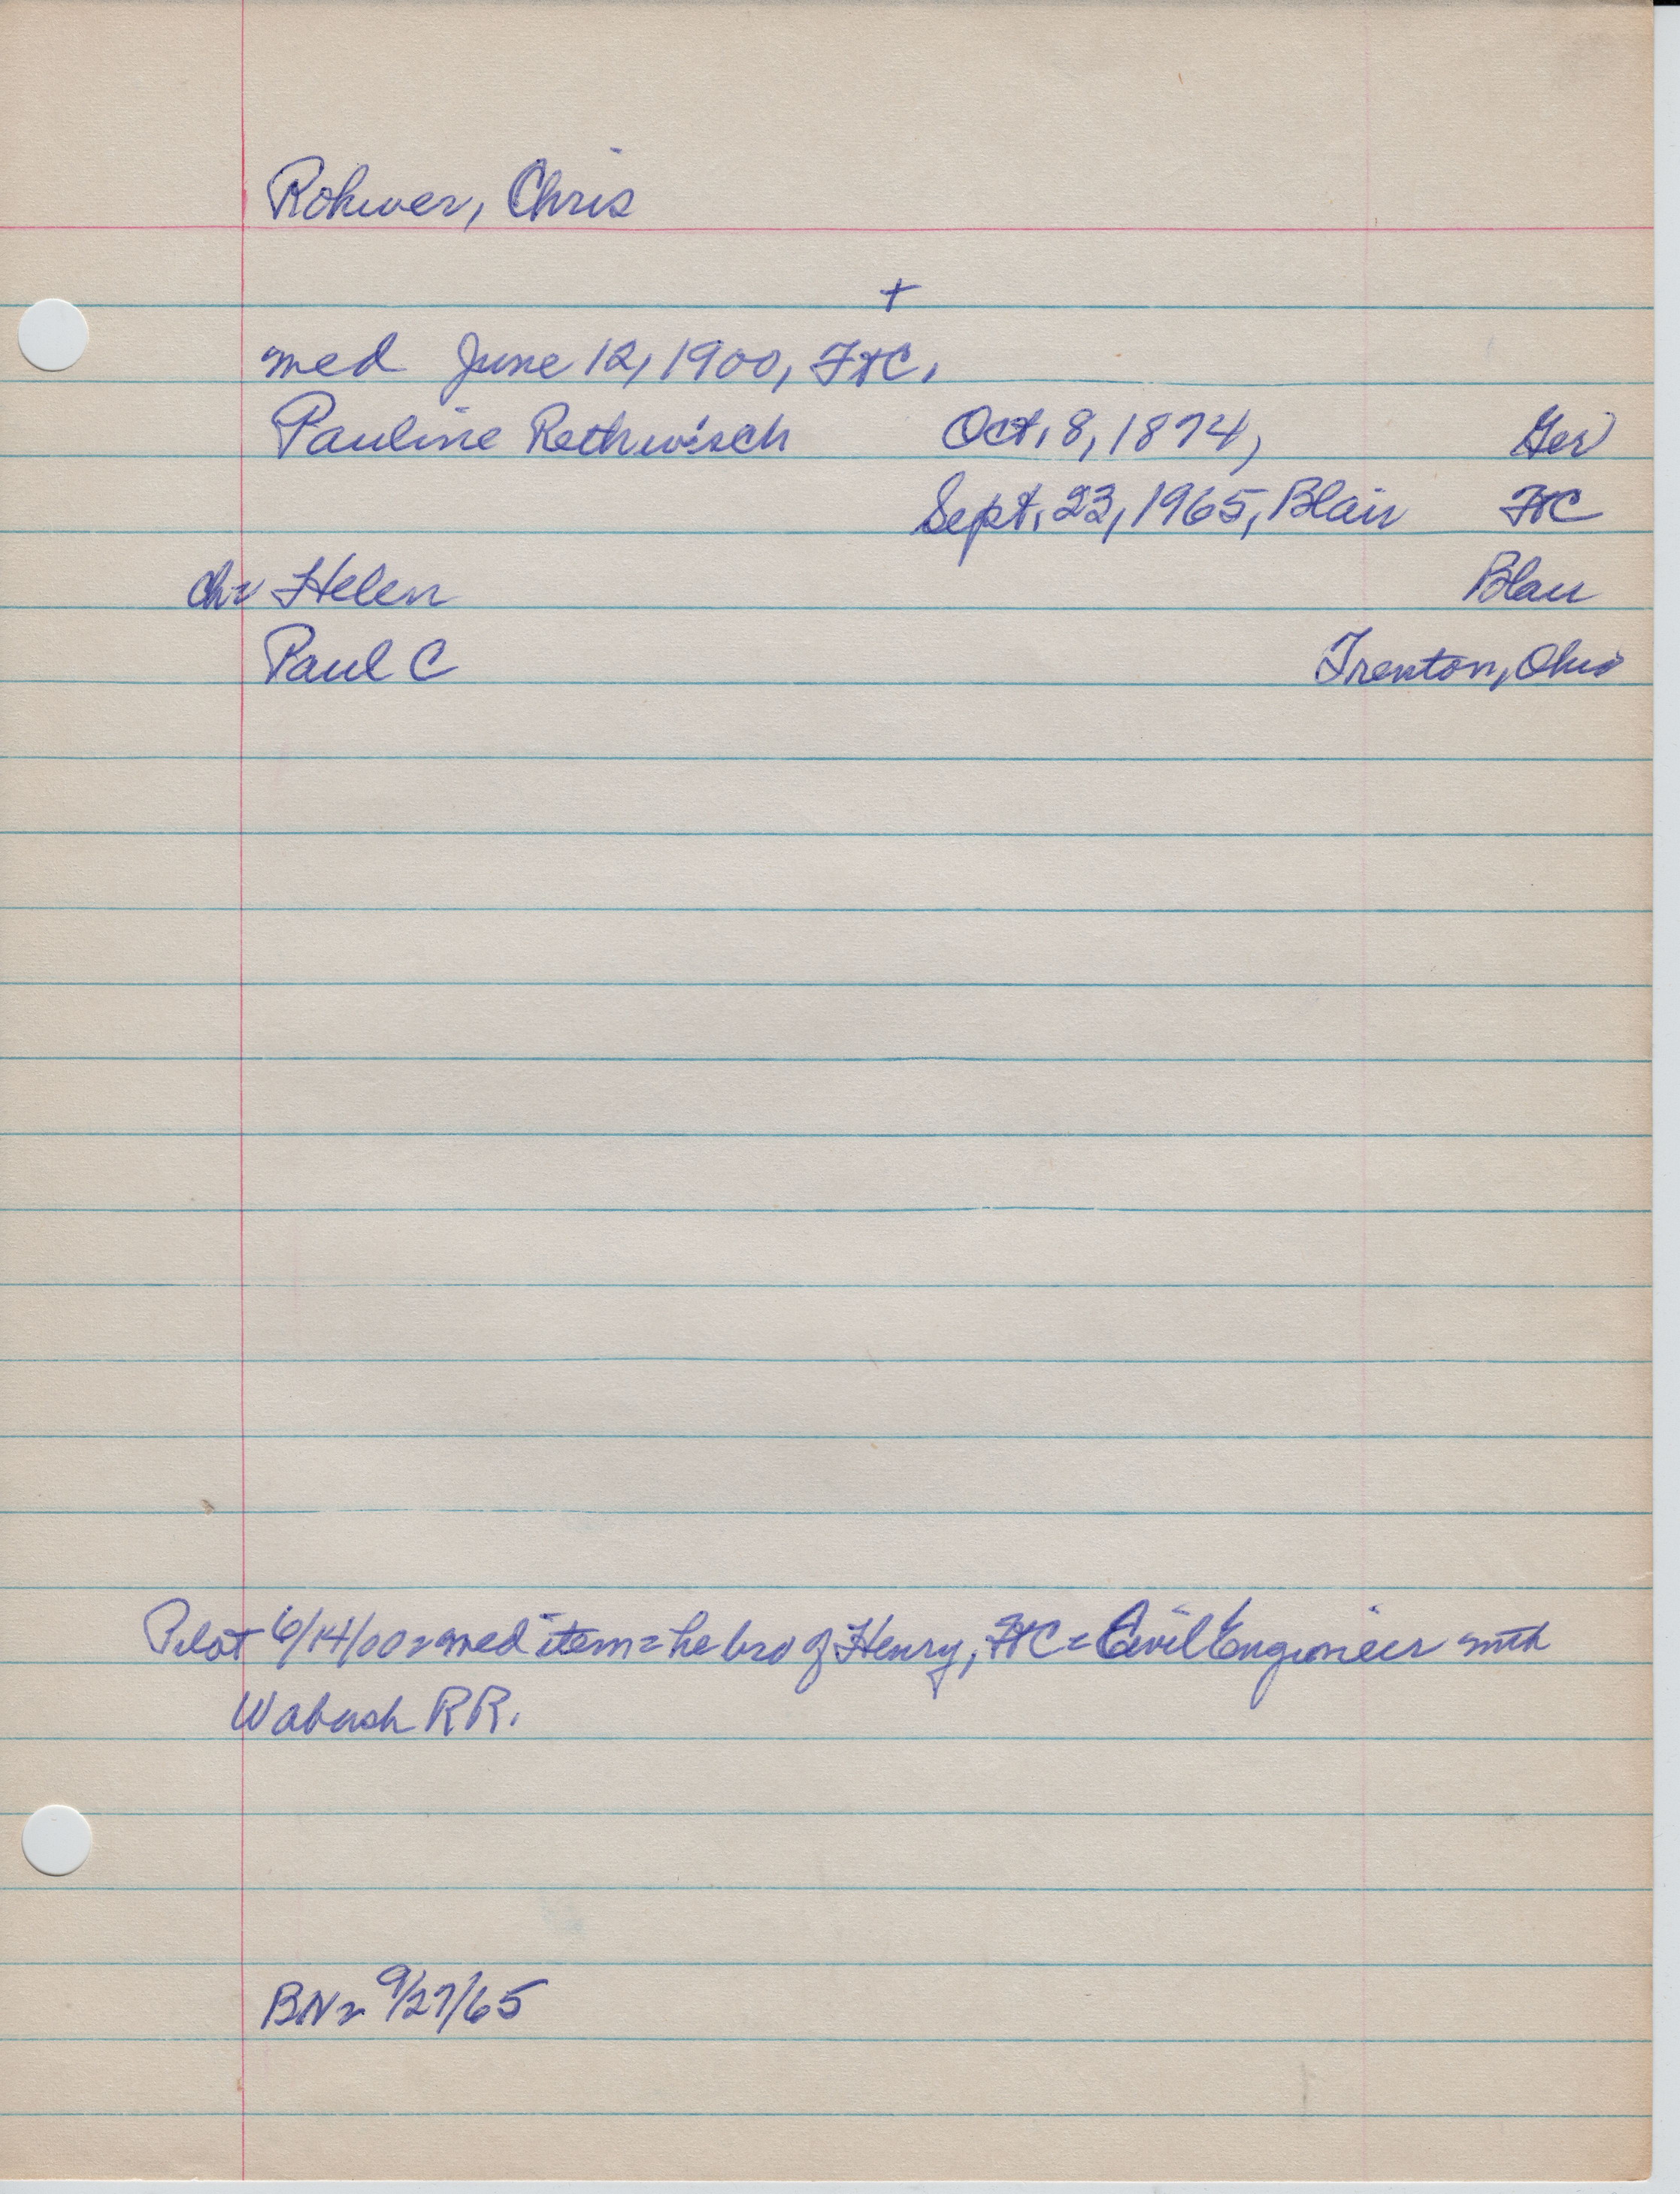 Rohwer, Chris
+
med June 12, 1900, FtC.
Pauline Rethwisch Oct. 8, 1874, Ger
Sept. 23, 1965, Blair FtC
ch= Helen Blair
Paul C Trenton, Ohio
Pilot 6/14/00= med item= he bro of Henry, FtC= Civil Engineer with
Wabash RR.
BN= 9/27/65